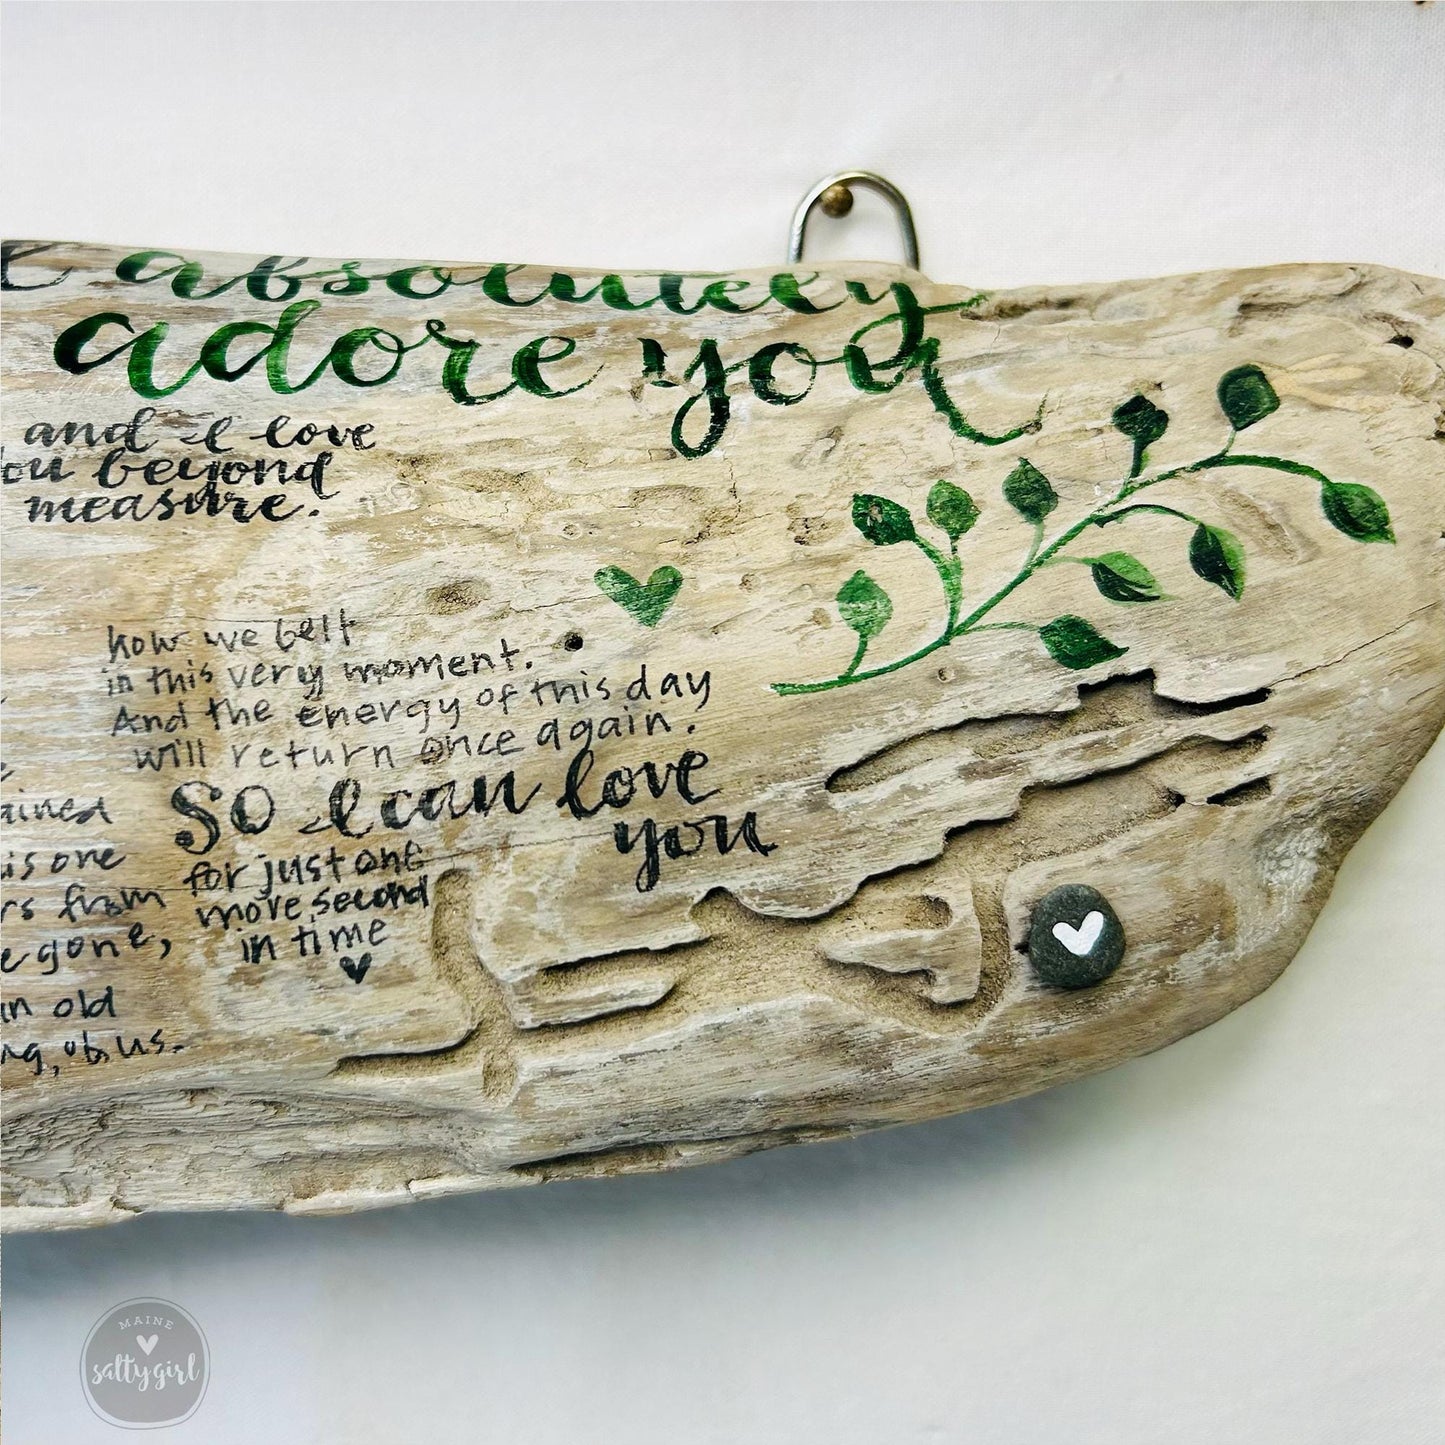 I absolutely
adore you
, and I love
you beyond
measure.
how we felt
in this very moment.
And the energy of this day
will return once again.
So I can love
you
for just one
more second
in time
ained
is one
rs from
e gone,
in old
ng, of us.
MAINE
saltygirl